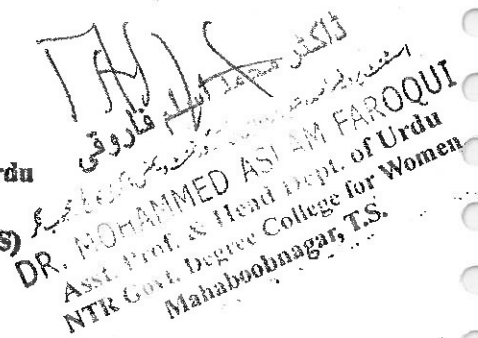 ڈاکٹر محمد اسلم فاروقی
rdu
S)
DR. MOHAMMED ASLAM FAROQUI
Asst. Prof. & Head Dept. of Urdu
NTR Govt. Degree College for Women
Mahaboobnagar, T.S.